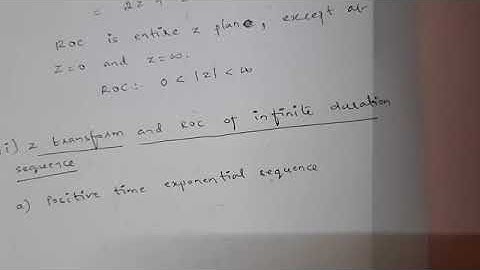 =
ROC is entire z plane, except at
z=0 and z=∞.
ROC: 0 < |z| < ∞
ii) z transform and ROC of infinite duration
sequence
a) Positive time exponential sequence